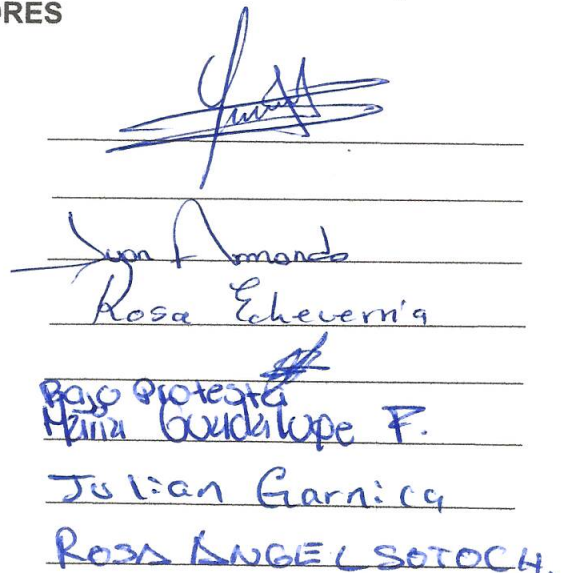 ORES
Juan Armando
Rosa Echeverria
Bajo Protesta
Maria Guadalupe F.
Julian Garnica
ROSA ANGEL SOTOCH.